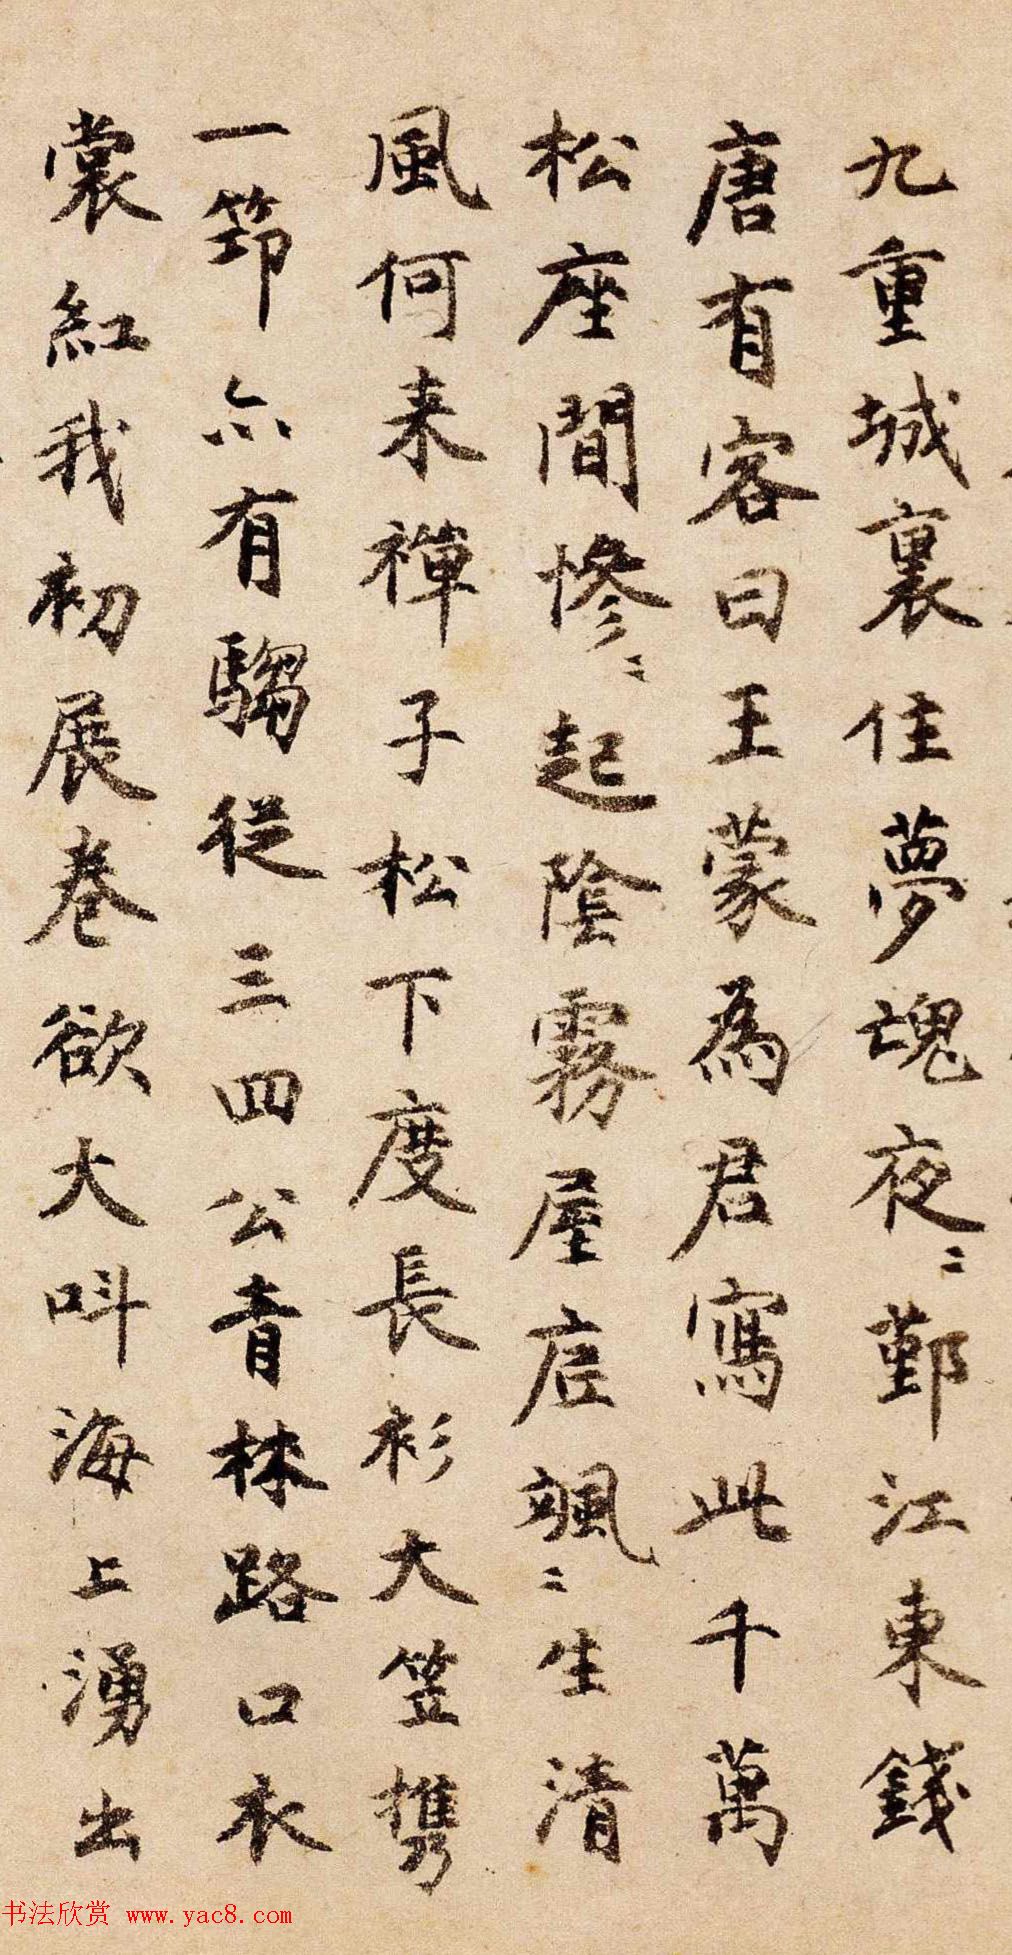 九重城裏住夢魂夜〻鄞江東錢
唐有客曰王蒙為君寫此千萬
松座間慘〻起陰霧屋底颯〻生清
風何来禅子松下度長衫大笠携
一笻亦有騶從三四公青林路口衣
裳紅我初展卷欲大呌海上湧出
书法欣赏 www.yac8.com